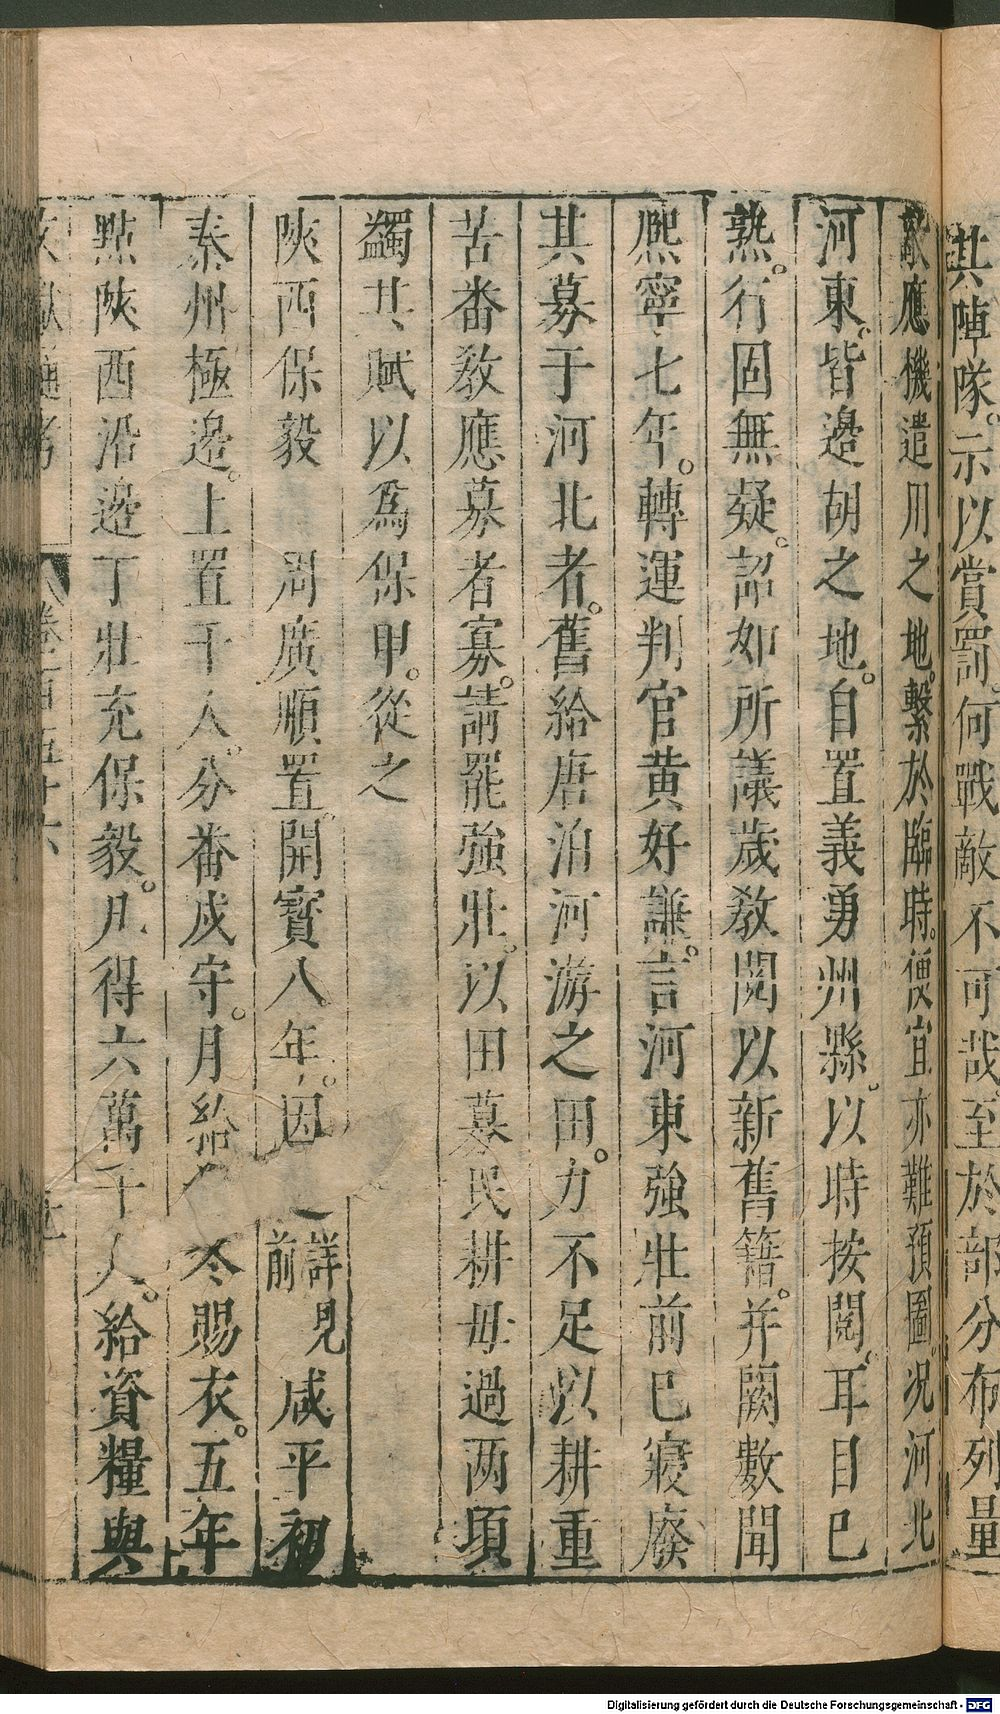 其陣隊。示以賞罰。何戰敵不可哉。至於部分布列。量
敵應機。遣用之地。繫於臨時。便宜亦難預圖。况河北
河東。皆邊胡之地。自置義勇。州縣。以時按閱。耳目已
熟。行固無疑。詔如所議。歲教閱以新舊籍。并闕數聞
熙寧七年。轉運判官黄好謙。言河東強壯前已寢廢
其募于河北者。舊給唐泊河游之田。力不足以耕。重
苦畨教應募者寡。請罷強壯。以田募民耕毋過两頃
蠲其賦以為保甲。從之
陝西保毅　周廣順置。開寳八年。因　之詳見前　咸平初
秦州極邊。上置千人。分畨戍守。月給　冬賜衣。五年
點陝西沿邊丁壯充保毅。凡得六萬千人。給資糧與
文獻通考　卷一百五十六　九
Digitalisierung gefördert durch die Deutsche Forschungsgemeinschaft - DFG